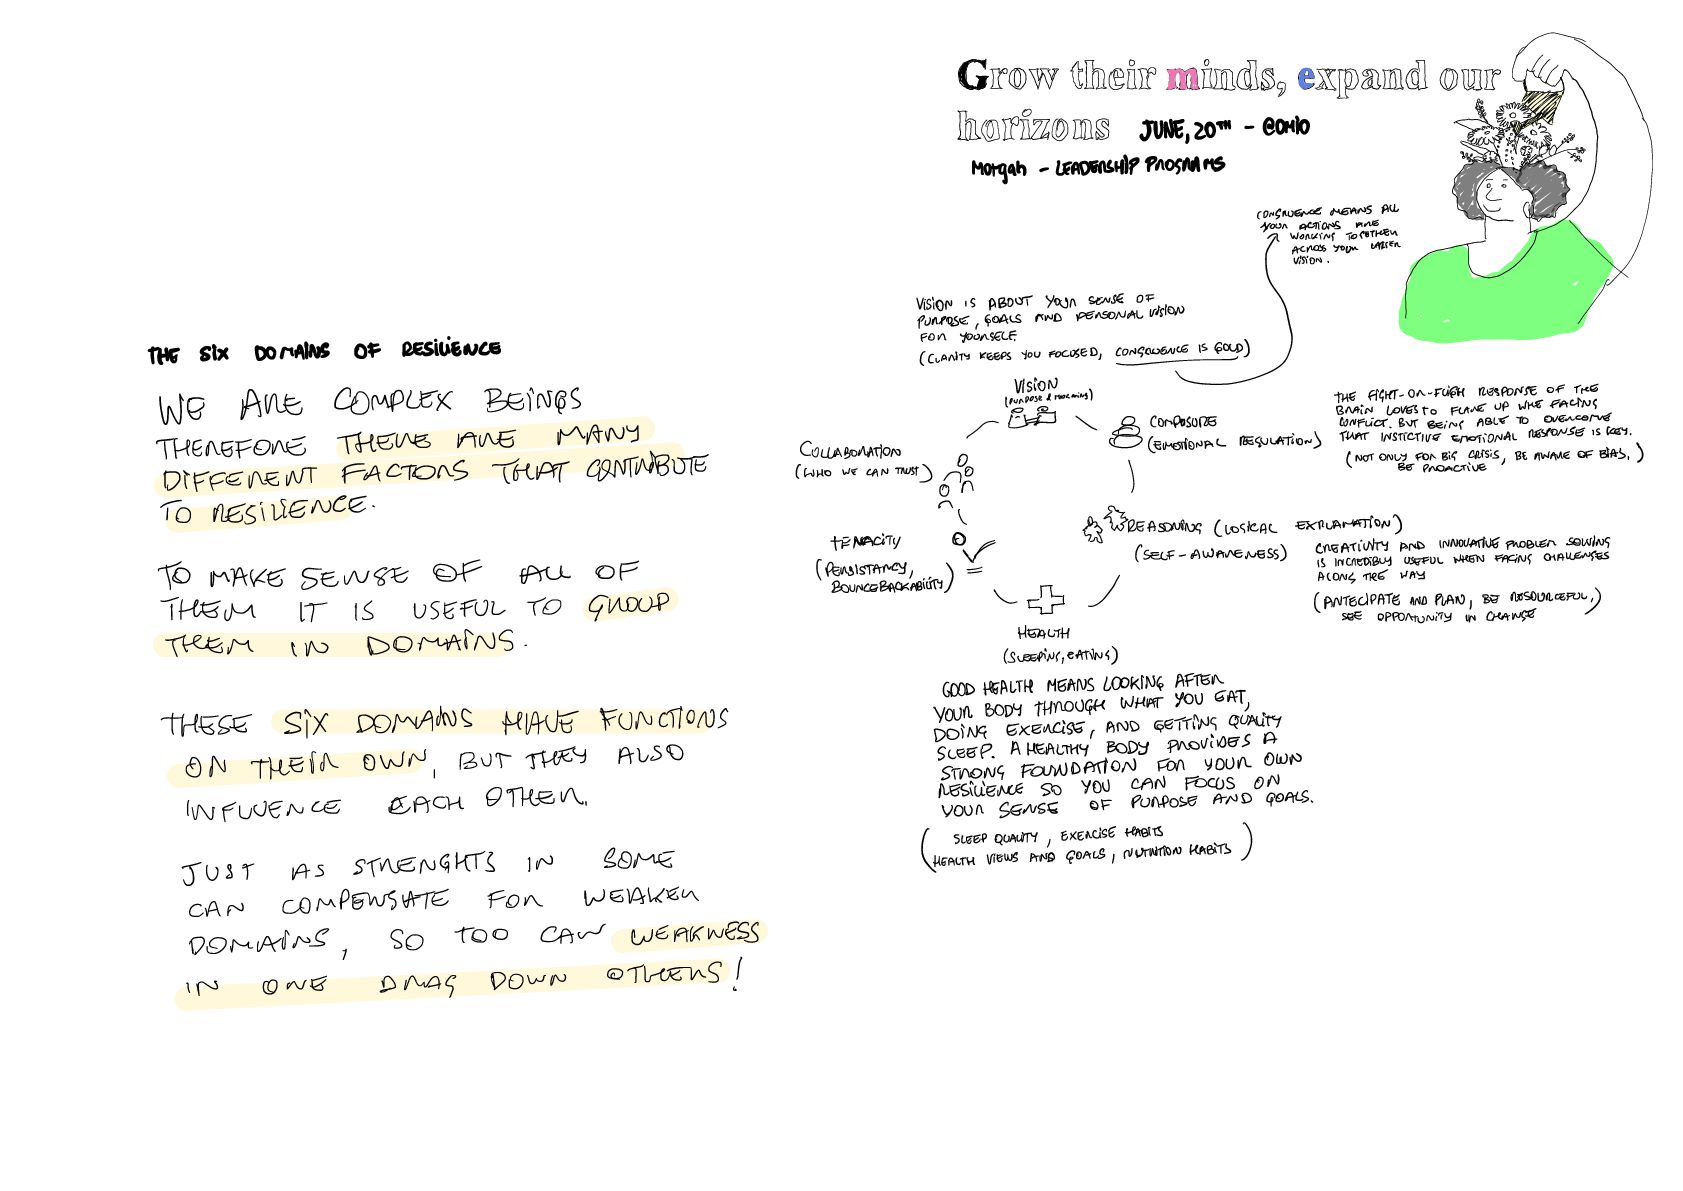 Grow their minds, expand our
horizons JUNE, 20TH - @OHIO
Morgan - LEADERSHIP PROGRAMS
THE SIX DOMAINS OF RESILIENCE
WE ARE COMPLEX BEINGS
THEREFORE THERE ARE MANY
DIFFERENT FACTORS THAT CONTRIBUTE
TO RESILIENCE.
TO MAKE SENSE OF ALL OF
THEM IT IS USEFUL TO GROUP
THEM IN DOMAINS.
THESE SIX DOMAINS HAVE FUNCTIONS
ON THEIR OWN, BUT THEY ALSO
INFLUENCE EACH OTHER.
JUST AS STRENGHTS IN SOME
CAN COMPENSATE FOR WEAKER
DOMAINS, SO TOO CAN WEAKNESS
IN ONE DRAG DOWN OTHERS!
CONGRUENCE MEANS ALL
YOUR ACTIONS ARE
WORKING TOGETHER
ACROSS YOUR LARGER
VISION.
VISION IS ABOUT YOUR SENSE OF
PURPOSE, GOALS AND PERSONAL VISION
FOR YOURSELF.
(CLARITY KEEPS YOU FOCUSED, CONGRUENCE IS GOLD)
VISION
(PURPOSE & MEANING)
COMPOSURE
(EMOTIONAL REGULATION)
THE FIGHT-OR-FLIGH RESPONSE OF THE
BRAIN LOVES TO FLARE UP WHE FACING
CONFLICT. BUT BEING ABLE TO OVERCOME
THAT INSTICTIVE EMOTIONAL RESPONSE IS KEY.
(NOT ONLY FOR BIG CRISIS, BE AWARE OF BIAS,)
BE PROACTIVE
REASONING (LOGICAL EXPLANATION)
(SELF-AWARENESS)
CREATIVITY AND INNOVATIVE PROBLEM SOLVING
IS INCREDIBLY USEFUL WHEN FACING CHALLENGES
ALONG THE WAY
(ANTECIPATE AND PLAN, BE RESOURCEFUL,)
SEE OPPORTUNITY IN CHANGE
COLLABORATION
(WHO WE CAN TRUST)
TENACITY
(PERSISTANCY,
BOUNCEBACKABILITY)
HEALTH
(SLEEPING, EATING)
GOOD HEALTH MEANS LOOKING AFTER
YOUR BODY THROUGH WHAT YOU EAT,
DOING EXERCISE, AND GETTING QUALITY
SLEEP. A HEALTHY BODY PROVIDES A
STRONG FOUNDATION FOR YOUR OWN
RESILIENCE SO YOU CAN FOCUS ON
YOUR SENSE OF PURPOSE AND GOALS.
(SLEEP QUALITY, EXERCISE HABITS
HEALTH VIEWS AND GOALS, NUTRITION HABITS)